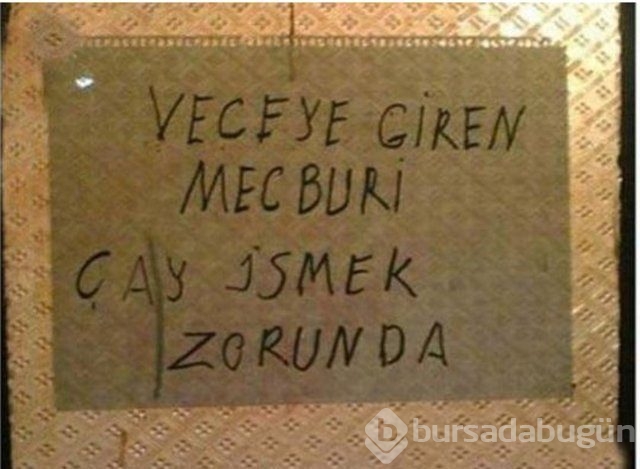 VECEYE GİREN
MECBURİ
ÇAY İSMEK
ZORUNDA
b bursadabugün